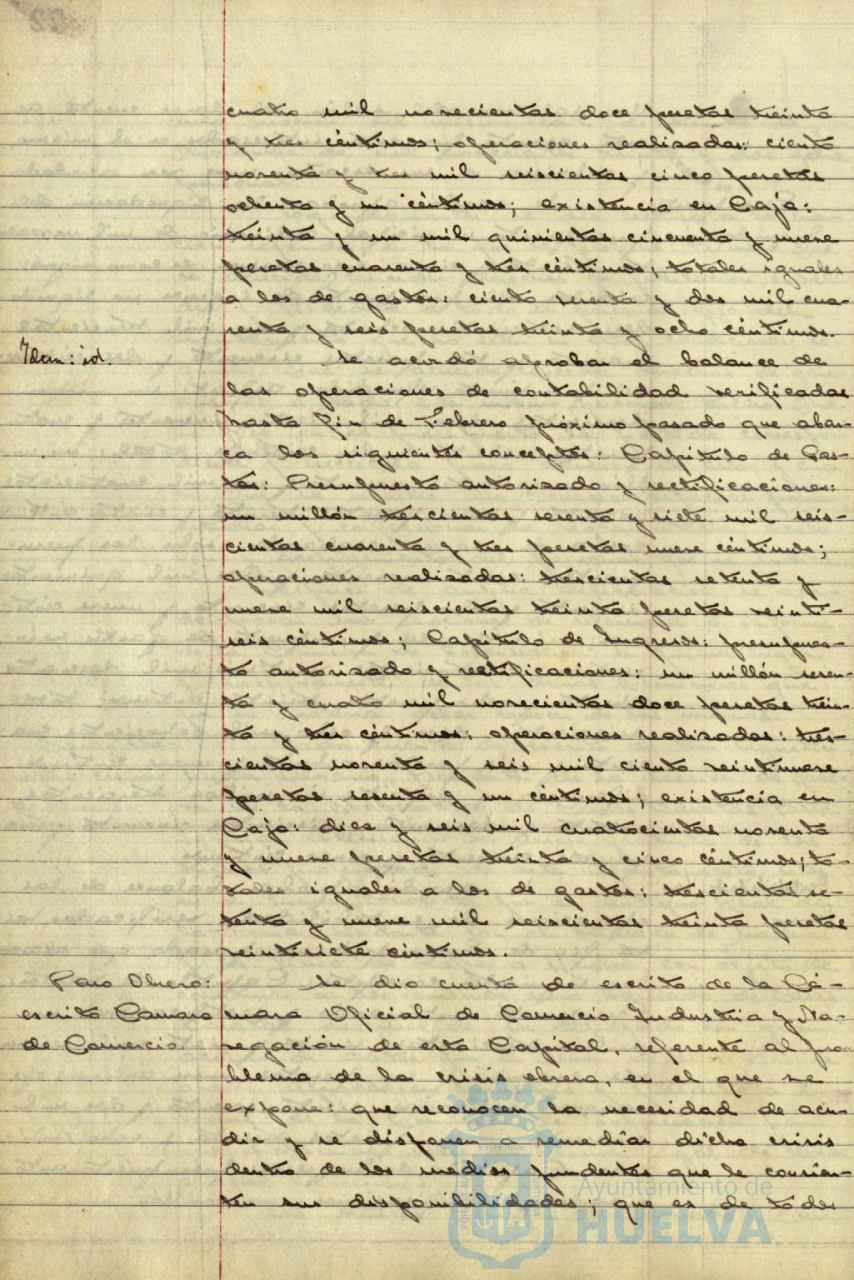 cuatro mil novecientas doce pesetas treinta
y tres céntimos; operaciones realizadas: ciento
noventa y tres mil seiscientas cinco pesetas
ochenta y un céntimos; existencia en Caja:
treinta y un mil quinientas cincuenta y nueve
pesetas cuarenta y tres céntimos; totales iguales
a los de gastos: ciento sesenta y dos mil cua-
renta y seis pesetas treinta y ocho céntimos.
Idem: id.
Se acordó aprobar el balance de
las operaciones de contabilidad verificadas
hasta fin de Febrero próximo pasado que abar-
ca los siguientes conceptos: Capítulo de Gas-
tos: Presupuesto autorizado y rectificaciones:
un millón trescientas sesenta y siete mil seis-
cientas cuarenta y tres pesetas nueve céntimos;
operaciones realizadas: trescientas setenta y
nueve mil seiscientas treinta pesetas veinti-
seis céntimos; Capítulo de Ingresos: presupues-
to autorizado y rectificaciones: un millón sesen-
ta y cuatro mil novecientas doce pesetas trein-
ta y tres céntimos; operaciones realizadas: tres-
cientas noventa y seis mil ciento veintinueve
pesetas sesenta y un céntimos; existencia en
Caja: diez y seis mil cuatrocientas noventa
y nueve pesetas treinta y cinco céntimos; to-
tales iguales a los de gastos: trescientas se-
tenta y nueve mil seiscientas treinta pesetas
veintisiete céntimos.
Paro Obrero:
escrito Camara
de Comercio.
Se dio cuenta de escrito de la Cá-
mara Oficial de Comercio Industria y Na-
vegación de esta Capital, referente al pro-
blema de la crisis obrera, en el que se
expone: que reconocen la necesidad de acu-
dir y se disponen a remediar dicha crisis
dentro de los medios prudentes que le consien-
ten sus disponibilidades; que es de todos
Ayuntamiento de
HUELVA